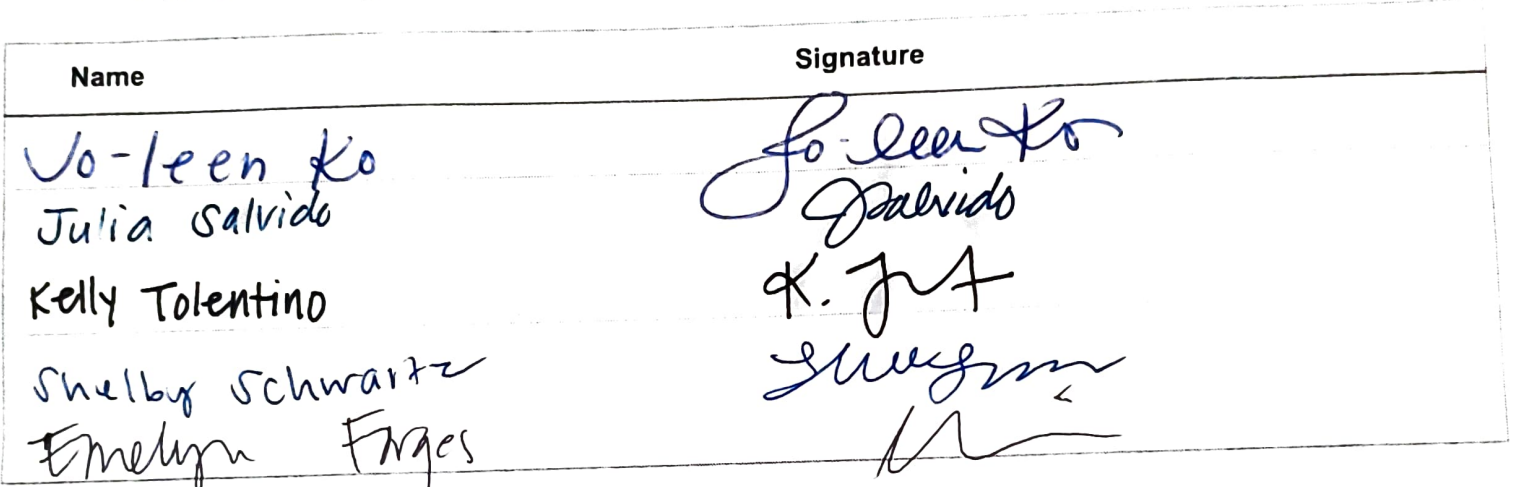 Name Signature
Jo-leen Ko Jo-leen Ko
Julia Salvido JSalvido
Kelly Tolentino K.
Shelby Schwartz
Emelyn